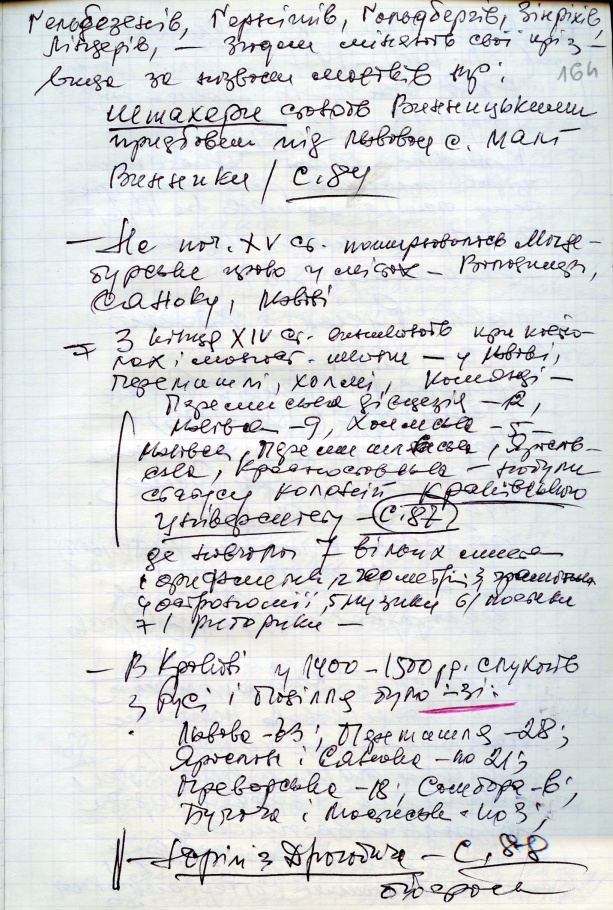 Гельбезенів, Гернітів, Гольдбергів, Зінріхів
Ліндерів, — згодом міняють свої пріз-
вища за назвами маєтків пр:
164
штахери стають Винницькими
придбавши під Львовом с. Малі
Винники / с. 84
— На поч. XV ст. поширювалось Магде-
бурське право у містах — Володимирі,
Саноку, Львові
— З кінця XIV ст. при косте-
лах і монаст. школи — у Львові,
Перемишлі, Холмі, Комянці —
Перемиська дієцезія — 12,
Львівська — 9, Холмська — 5 —
Львівська, Перемишльська, Ярослав-
ська, Красноставська — набули
статусу колоній Краківського
університету — с. 87
де навчали 7 вільних мистец
арифметики, 2 геометрії, 3 граматика
4 астрономії, 5 музики 6/ поетики
7/ риторики —
— В Кракові у 1400 – 1500 рр. слухачів
з Русі і Поділля було - зі:
Львова – 63; Перемишля – 28;
Ярослава і Сянока – по 21;
Преворська – 18; Самбора – 6;
Бучача і – по 3;
— Юрій з Дрогобича — с. 88